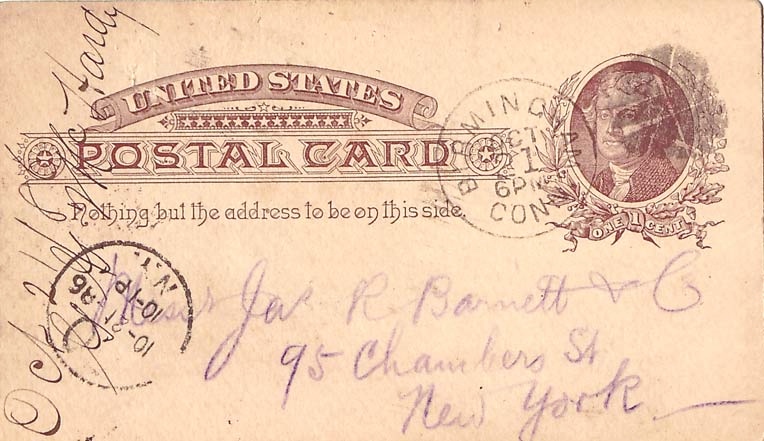 UNITED STATES
POSTAL CARD
Nothing but the address to be on this side.
ONE 1 CENT
BIRMINGHAM
OCT
21
6PM
CONN
N.Y.
10-1P
10-21 86
Messrs Jas R Barnett & Co
95 Chambers St
New York
Oct